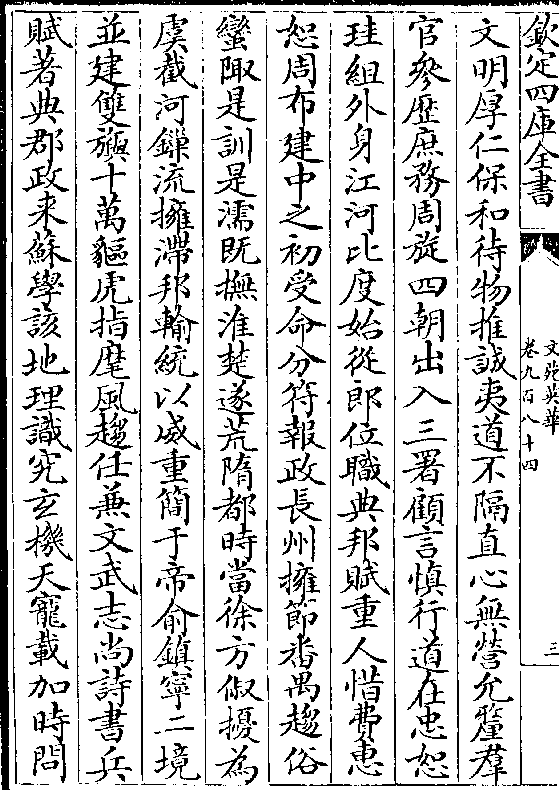 欽定四庫全書
文苑英華
卷九百八十四
三
文明厚仁保和待物推誠夷道不隔直心無營允釐羣
官參歴庶務周旋四朝出入三署顧言慎行道在忠恕
珪組外身江河比度始從郎位職典邦賦重人惜費惠
恕周布建中之初受命分符報政長州擁節畨禺趍俗
蠻陬是訓是濡既撫淮楚遂荒隋都時當徐方俶擾為
虞截河鏁流擁滯邦輸統以威重簡于帝俞鎮寧二境
並建雙旟十萬貙虎指麾風趍任兼文武志尚詩書兵
賦著典郡政来蘇學該地理識究玄機天寵載加時問